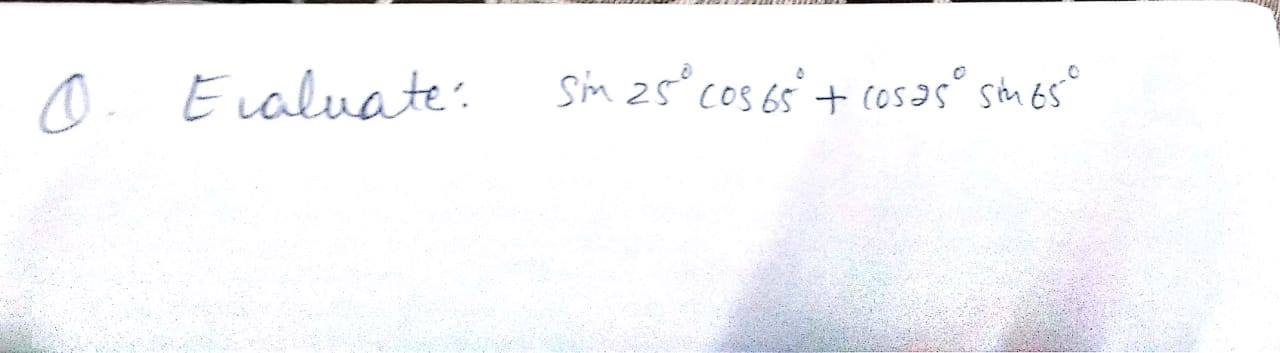 Q. Evaluate: sin 25° cos 65° + cos 25° sin 65°